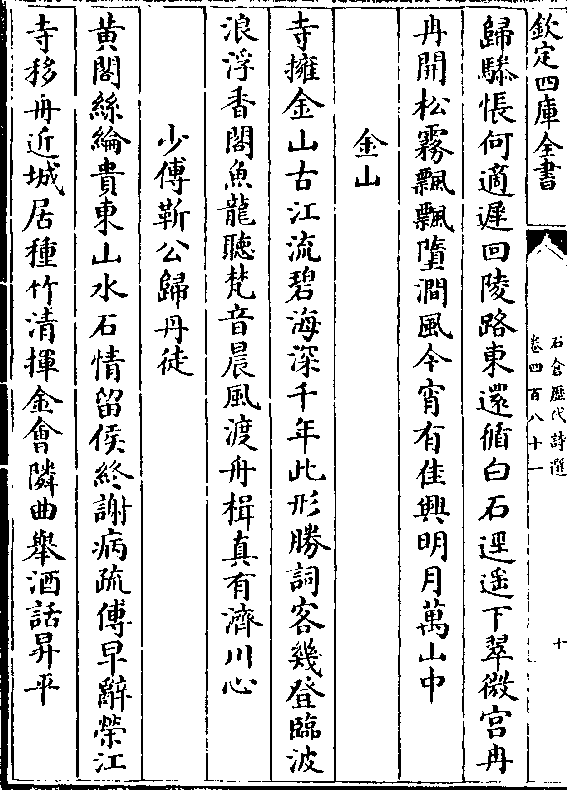 欽定四庫全書
石倉歷代詩選
卷四百八十一
十
歸驂悵何適遲回陵路東還循白石逕遥下翠微宫冉
冉開松霧飄飄墮澗風今宵有佳興明月萬山中
金山
寺擁金山古江流碧海深千年此形勝詞客幾登臨波
浪浮香閣魚龍聽梵音晨風渡舟楫真有濟川心
少傅靳公歸丹徒
黄閣絲綸貴東山水石情留侯終謝病疏傅早辭榮江
寺移舟近城居種竹清揮金會隣曲舉酒話昇平